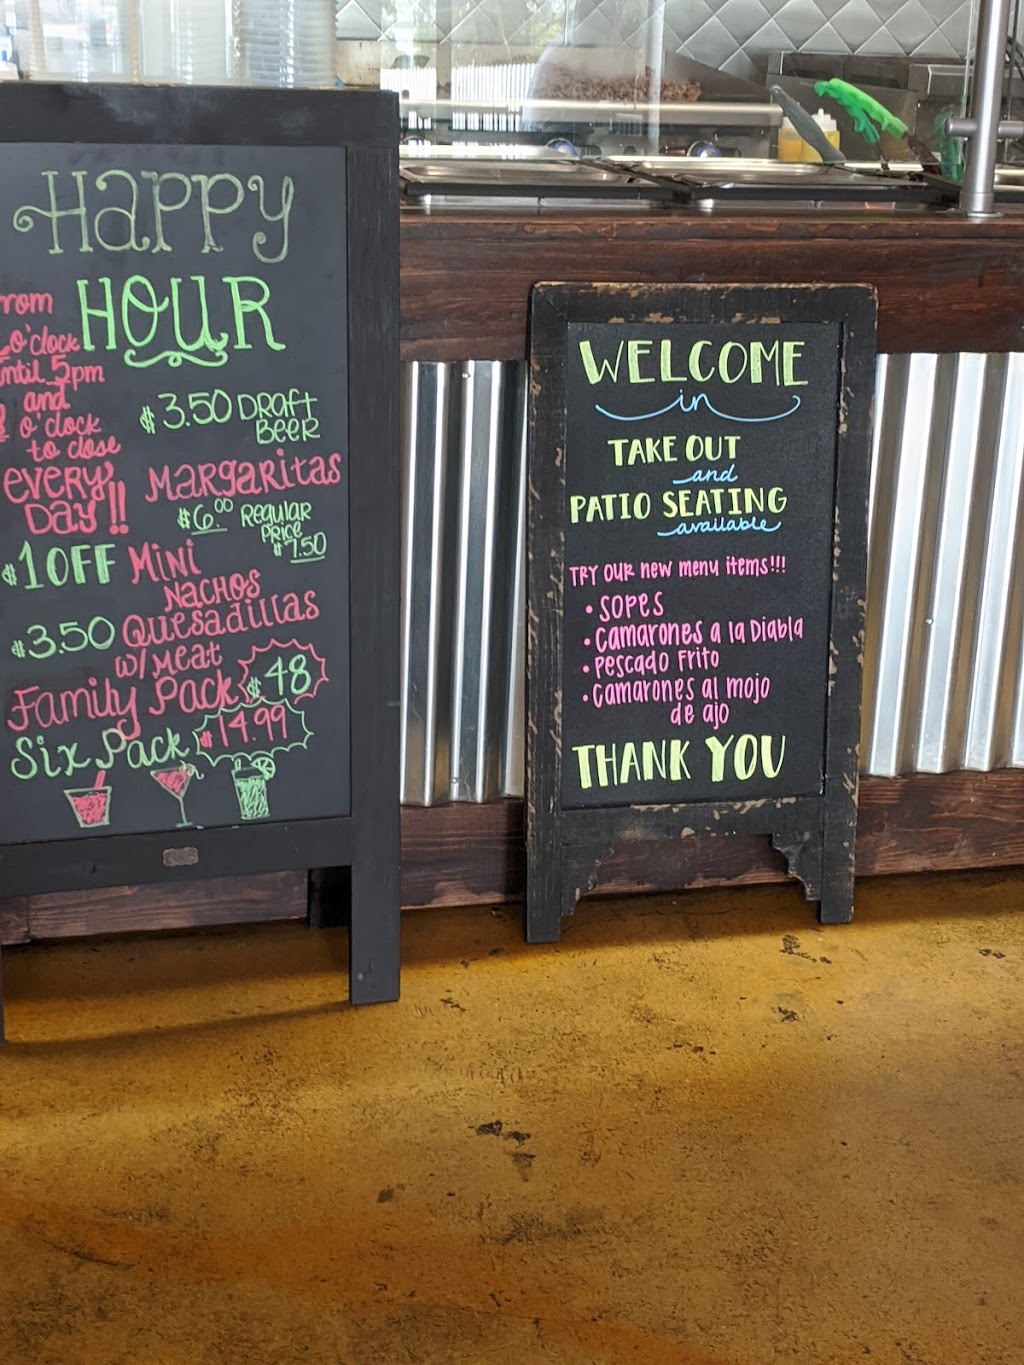 HAPPY
HOUR
o'clock
until 5pm
and
8 o'clock
to close
EVERY
DAY!!
$3.50 DRAFT
BEER
MARGARITAS
$6.00 REGULAR
PRICE
$7.50
$1 OFF MINI
NACHOS
$3.50 QUESADILLAS
W/ MEAT
Family Pack $48
Six Pack $14.99
WELCOME
in
TAKE OUT
and
PATIO SEATING
available
TRY OUR new menu items!!!
• SOPES
• CAMARONES A LA DIABLA
• PESCADO FRITO
• CAMARONES AL MOJO
DE AJO
THANK YOU